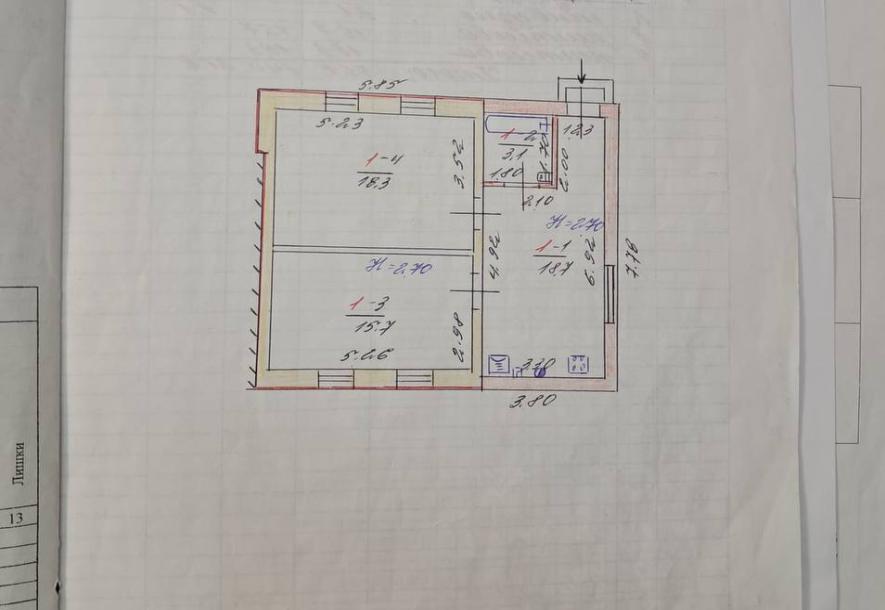 5.85
5.23
1-4
18.3
3.52
1-2
3.1
1.70
1.80
1.23
2.00
2.10
H=2.70
1-1
18.7
4.92
6.92
7.78
H=2.70
1-3
15.7
5.26
2.98
3.10
3.80
Лишки
13